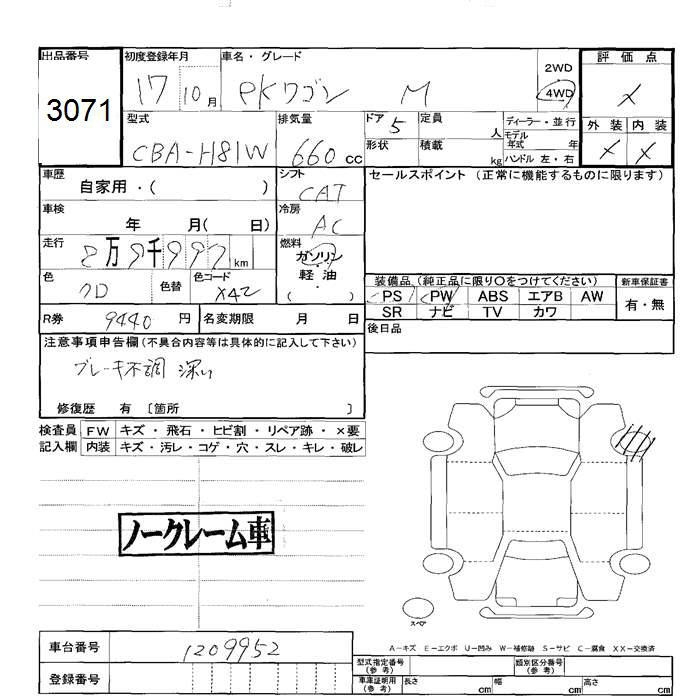 出品番号 初度登録年月 車名・グレード 2WD 評価点
3071 17 10月 PKワゴン M 4WD X
型式 排気量 ドア 5 定員 人 ディーラー・並行 外装 内装
CBA-H81W 660 cc 形状 積載 kg モデル年式 年 X X
ハンドル 左・右
車歴 自家用・( ) シフト CAT セールスポイント (正常に機能するものに限ります)
車検 年 月( 日) 冷房 AC
走行 2万9千997 km 燃料 ガソリン
軽油
( )
色 色替 色コード X42
装備品 (純正品に限り○をつけてください) 新車保証書
PS PW ABS エアB AW 有・無
SR ナビ TV カワ
R券 9440 円 名変期限 月 日 後日品
注意事項申告欄 (不具合内容等は具体的に記入して下さい)
ブレーキ不調 深い
修復歴 有 〔箇所 〕
検査員 FW キズ・飛石・ヒビ割・リペア跡・×要
記入欄 内装 キズ・汚レ・コゲ・穴・スレ・キレ・破レ
ノークレーム車
スペア
A-キズ E-エクボ U-凹み W-補修跡 S-サビ C-腐食 XX-交換済
車台番号 1209952
登録番号
型式指定番号 (参考) 類別区分番号 (参考)
車庫証明用 (参考) 長さ cm 幅 cm 高さ cm